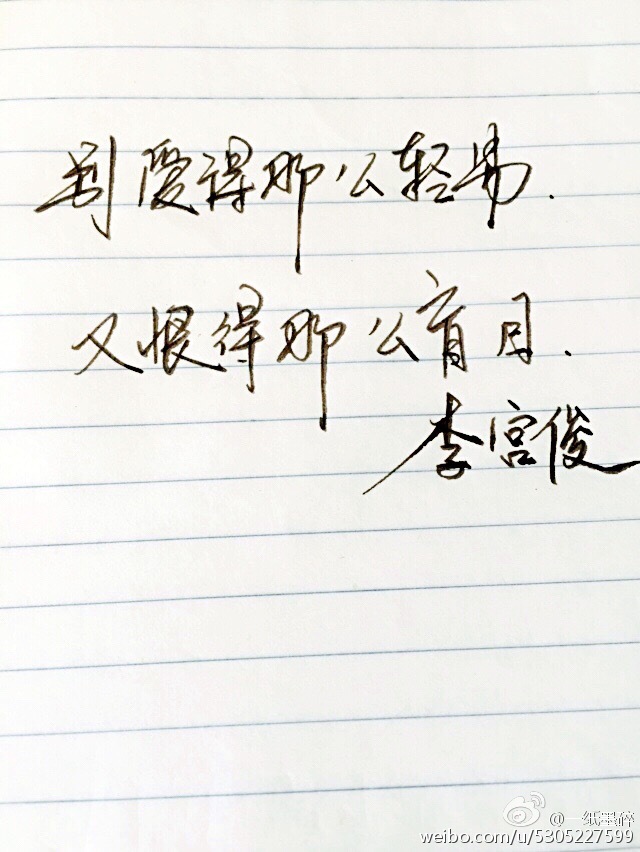 别爱得那么轻易.
又恨得那么盲目.
李宫俊
@一纸墨碎
weibo.com/u/5305227599